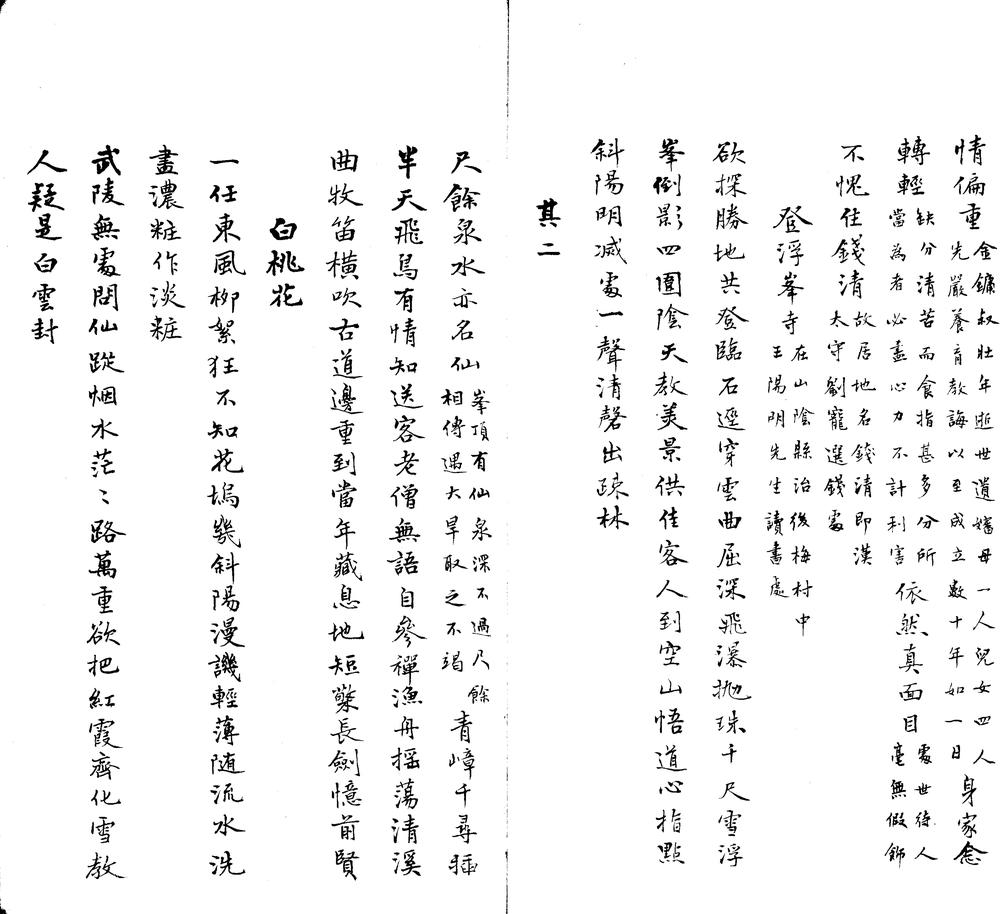 情偏重金鏞叔壯年逝世遺孀母一人兒女四人先嚴養育教誨以至成立數十年如一日身家念
轉輕缺分清苦而食指甚多分所當為者必盡心力不計利害依然真面目處世待人毫無假飾
不愧住錢清故居地名錢清即漢太守劉寵選錢處
登浮峯寺在山陰縣治後梅村中王陽明先生讀書處
欲探勝地共登臨石逕穿雲曲屈深飛瀑拋珠千尺雪浮
峯倒影四圍陰天教美景供佳客人到空山悟道心指點
斜陽明滅處一聲清磬出疎林
其二
尺餘泉水亦名仙峯頂有仙泉深不過尺餘相傳遇大旱取之不竭青嶂千尋插
半天飛鳥有情知送客老僧無語自參禪漁舟搖蕩清溪
曲牧笛橫吹古道邊重到當年藏息地短檠長劍憶前賢
白桃花
一任東風柳絮狂不知花塢幾斜陽漫譏輕薄随流水洗
盡濃粧作淡粧
武陵無處問仙蹤烟水茫〻路萬重欲把紅霞齊化雪教
人疑是白雲封